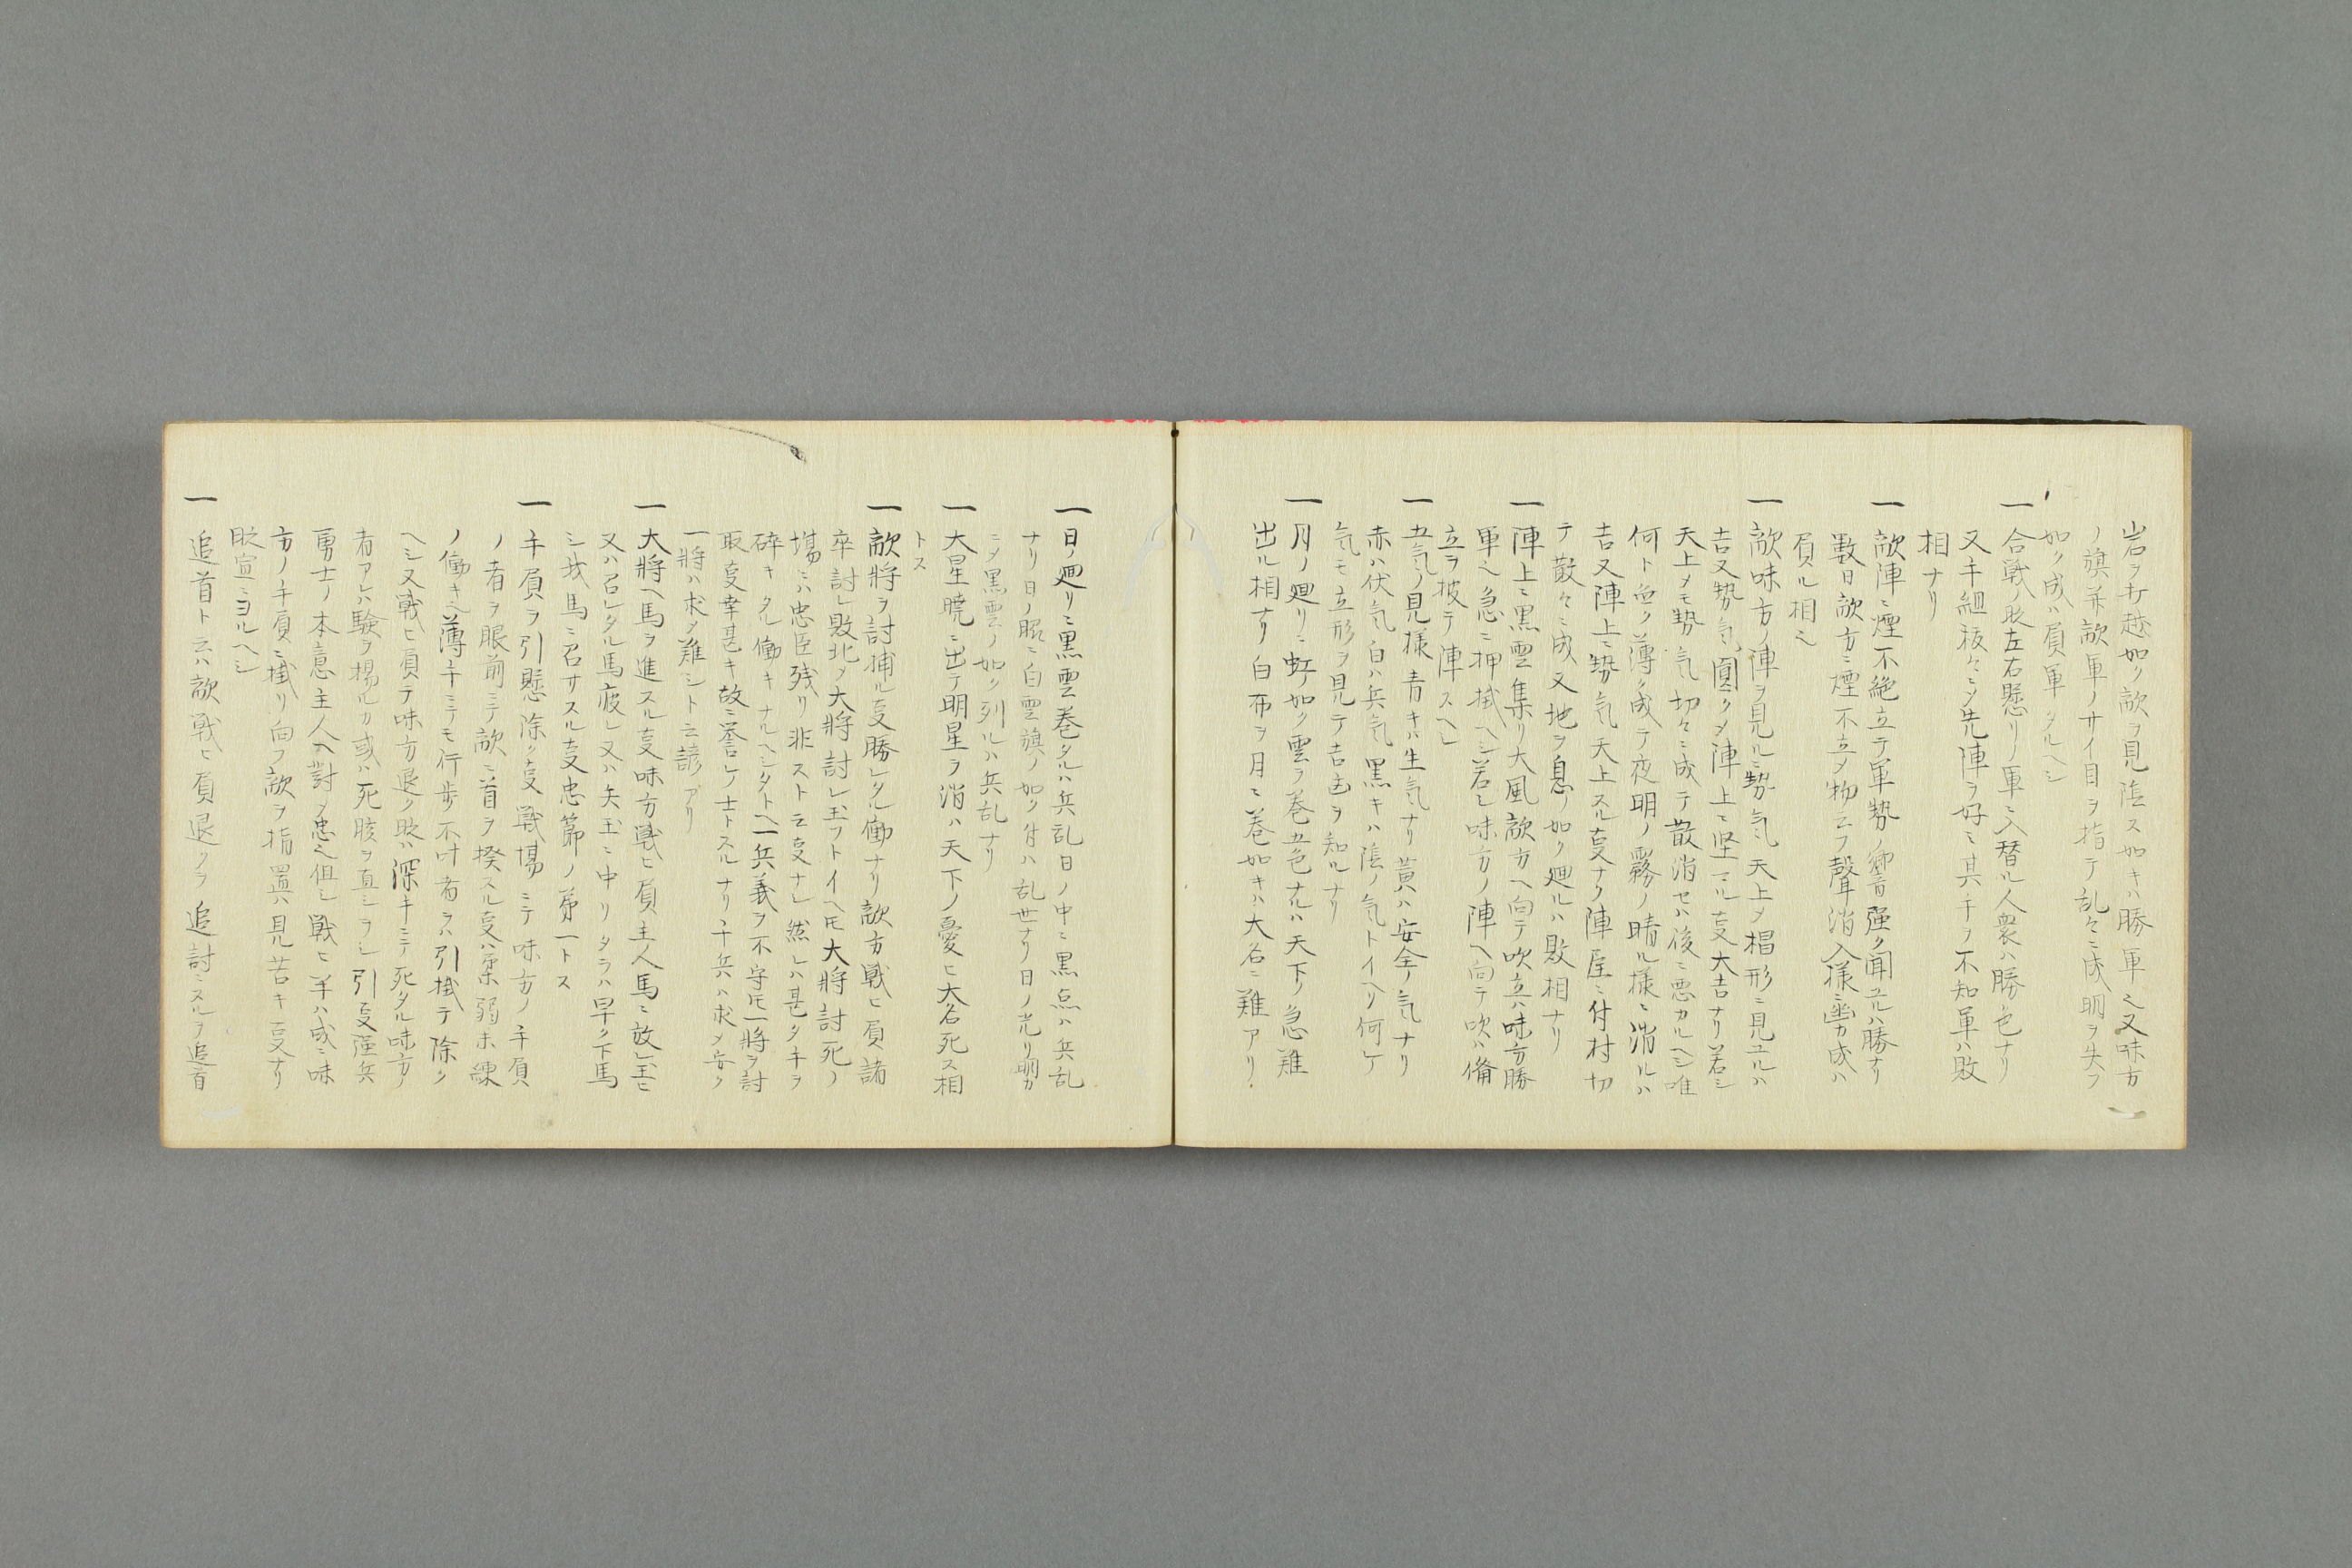 岩ヲ打越如ク敵ヲ見陰ス如キハ勝軍也又味方
ノ旗并敵軍ノサイ目ヲ指テ乱々ニ成明ヲ失フ
如ク成ハ負軍タルヘシ
一 合戦ノ時左右懸リノ軍ニ入替ル人衆ハ勝色ナリ
又手組板々ニメ先陣ヲ好ミ其手ヲ不知軍ハ敗
相ナリ
一 敵陣ニ煙不絶立テ軍勢ノ響音強ク聞ユルハ勝ナリ
数日敵方ニ煙不立メ物云フ聲消入様ニ幽カ成ハ
負ル相也
一 敵味方ノ陣ヲ見ルニ勢気天上メ椙形ニ見ユルハ
吉又勢気圓クメ陣上ニ堅マル叓大吉ナリ若シ
天上メモ勢気切々ニ成テ散消セハ後ニ悪カルヘシ唯
何ト無ク薄ク成テ夜明ノ霧ノ晴ル様ニ消ルハ
吉又陣上ニ勢気天上スル叓ナク陣屋ニ付村切
テ散々ニ成又地ヲ息ノ如ク廻ルハ敗相ナリ
一 陣上ニ黒雲集リ大風敵方ヘ向テ吹立ハ味方勝
軍也急ニ押掛ヘシ若シ味方ノ陣ヘ向テ吹ハ備
立ヲ披テ陣スヘシ
一 五気ノ見様青キハ生気ナリ黄ハ安全ノ気ナリ
赤ハ伏気白ハ兵気黒キハ陰ノ気トイヘリ何ケ
気モ立形ヲ見テ吉凶ヲ知ルナリ
一 月ノ廻リニ虹ノ如ク雲ヲ巻五色ナルハ天下ノ急難
出ル相ナリ白布ヲ月ニ巻如キハ大名ニ難アリ
一 日ノ廻リニ黒雲巻タルハ兵乱日ノ中ニ黒点ハ兵乱
ナリ日ノ脇ニ白雲旗ノ如ク付ハ乱世ナリ日ノ光リ明カ
ニメ黒雲ノ如ク列ルハ兵乱ナリ
一 大星暁ニ出テ明星ヲ消ハ天下ノ憂ヒ大名死ス相
トス
一 敵將ヲ討捕ル叓勝レタル働ナリ敵方戦ヒ負諸
卒討レ敗北メ大將討レ玉フトイヘ𪜈大將討死ノ
場ニハ忠臣残リ非ストモ云叓ナシ然レハ甚タキヲ
碎キタル働キナルヘシタトヘ一兵義ヲ不守𪜈一將ヲ討
取叓幸甚キ故ニ誉レノ士トスルナリ千兵ハ求メ安ク
一將ハ求メ難シト云諺アリ
一 大將ヘ馬ヲ進スル叓味方戦ヒ負主人馬ニ放レ玉ヒ
又ハ召レタル馬疲レ又ハ矢玉ニ中リタラハ早ク下馬
シ我馬ニ召サスル叓忠節ノ第一トス
一 手負ヲ引懸除ク叓戦場ニテ味方ノ手負
ノ者ヲ眼前ニテ敵ニ首ヲ揆スル叓ハ柔弱未練
ノ働キ也薄手ニテモ行歩不叶者ヲハ引掛テ除ク
ヘシ又戦ヒ負テ味方退ク時ハ深キニテ死タル味方ノ
者アレハ験ヲ揚ルカ或ハ死骸ヲ直シヲシ引叓強兵
勇士ノ本意主人ヘ對メ忠也但シ戦ヒ半ハ成ニ味
方ノ手負ニ掛リ向フ敵ヲ指置ハ見苦キ叓ナリ
時宜ニヨルヘシ
一 追首ト云ハ敵戦ヒ負退クヲ追討ニスルヲ追首